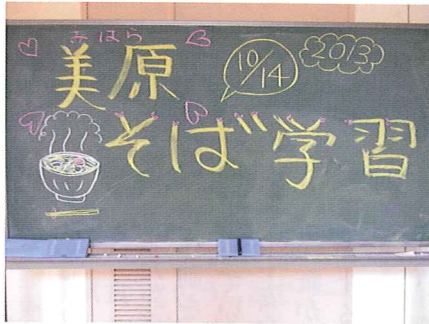 みはら
美原
10/14
2013
そば学習